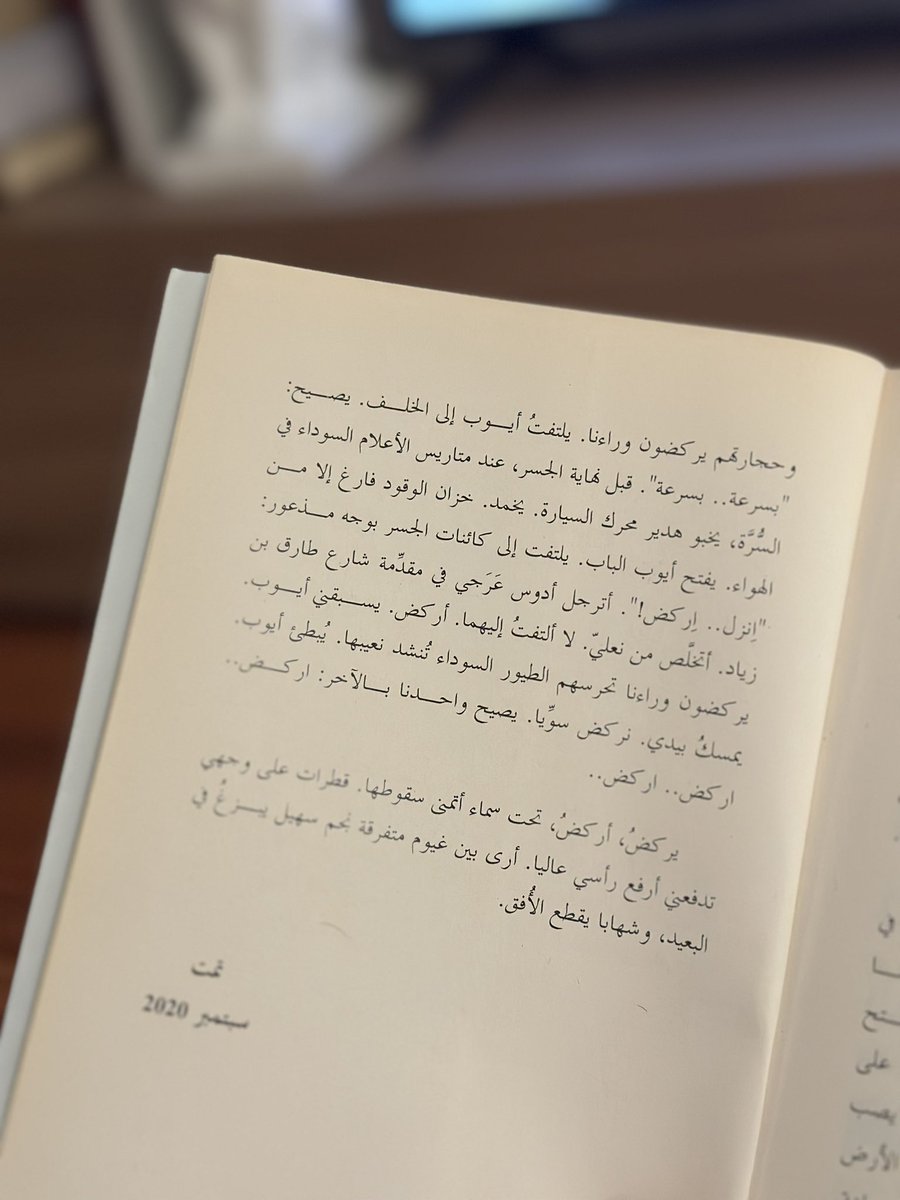 وحجارتهم يركضون وراءنا. يلتفتُ أيـوب إلى الخلـف. يصـيح:
"بسرعة.. بسرعة". قبل نهاية الجسر، عند متاريس الأعلام السوداء في
السُّرَّة، يخبو هدير محرك السيارة. يخمد. خزان الوقود فارغ إلا مـن
الهواء. يفتح أيوب الباب. يلتفت إلى كائنات الجسر بوجه مـذعور:
"اِنزل.. اِركض!". أترجل أدوس عَرَجي في مقدِّمة شارع طارق بن
زياد. أتخلَّص من نعليّ. لا ألتفتُ إليهما. أركض. يسـبقني أيـوب.
يركضون وراءنا تحرسهم الطيور السوداء تُنشد نعيبها. يُبطئ أيوب.
يمسكُ بيدي. نركض سوِّيا. يصيح واحـدنا بـالآخر: اركـض..
اركض.. اركض..
يركضُ، أركضُ، تحت سماء أتمنى سقوطها. قطرات على وجهي
تدفعني أرفع رأسي عاليا. أرى بين غيوم متفرقة نجم سهيل يبـزغُ في
البعيد، وشهابا يقطع الأُفق.
تمت
سبتمبر 2020
في
ـا
على
الأرض